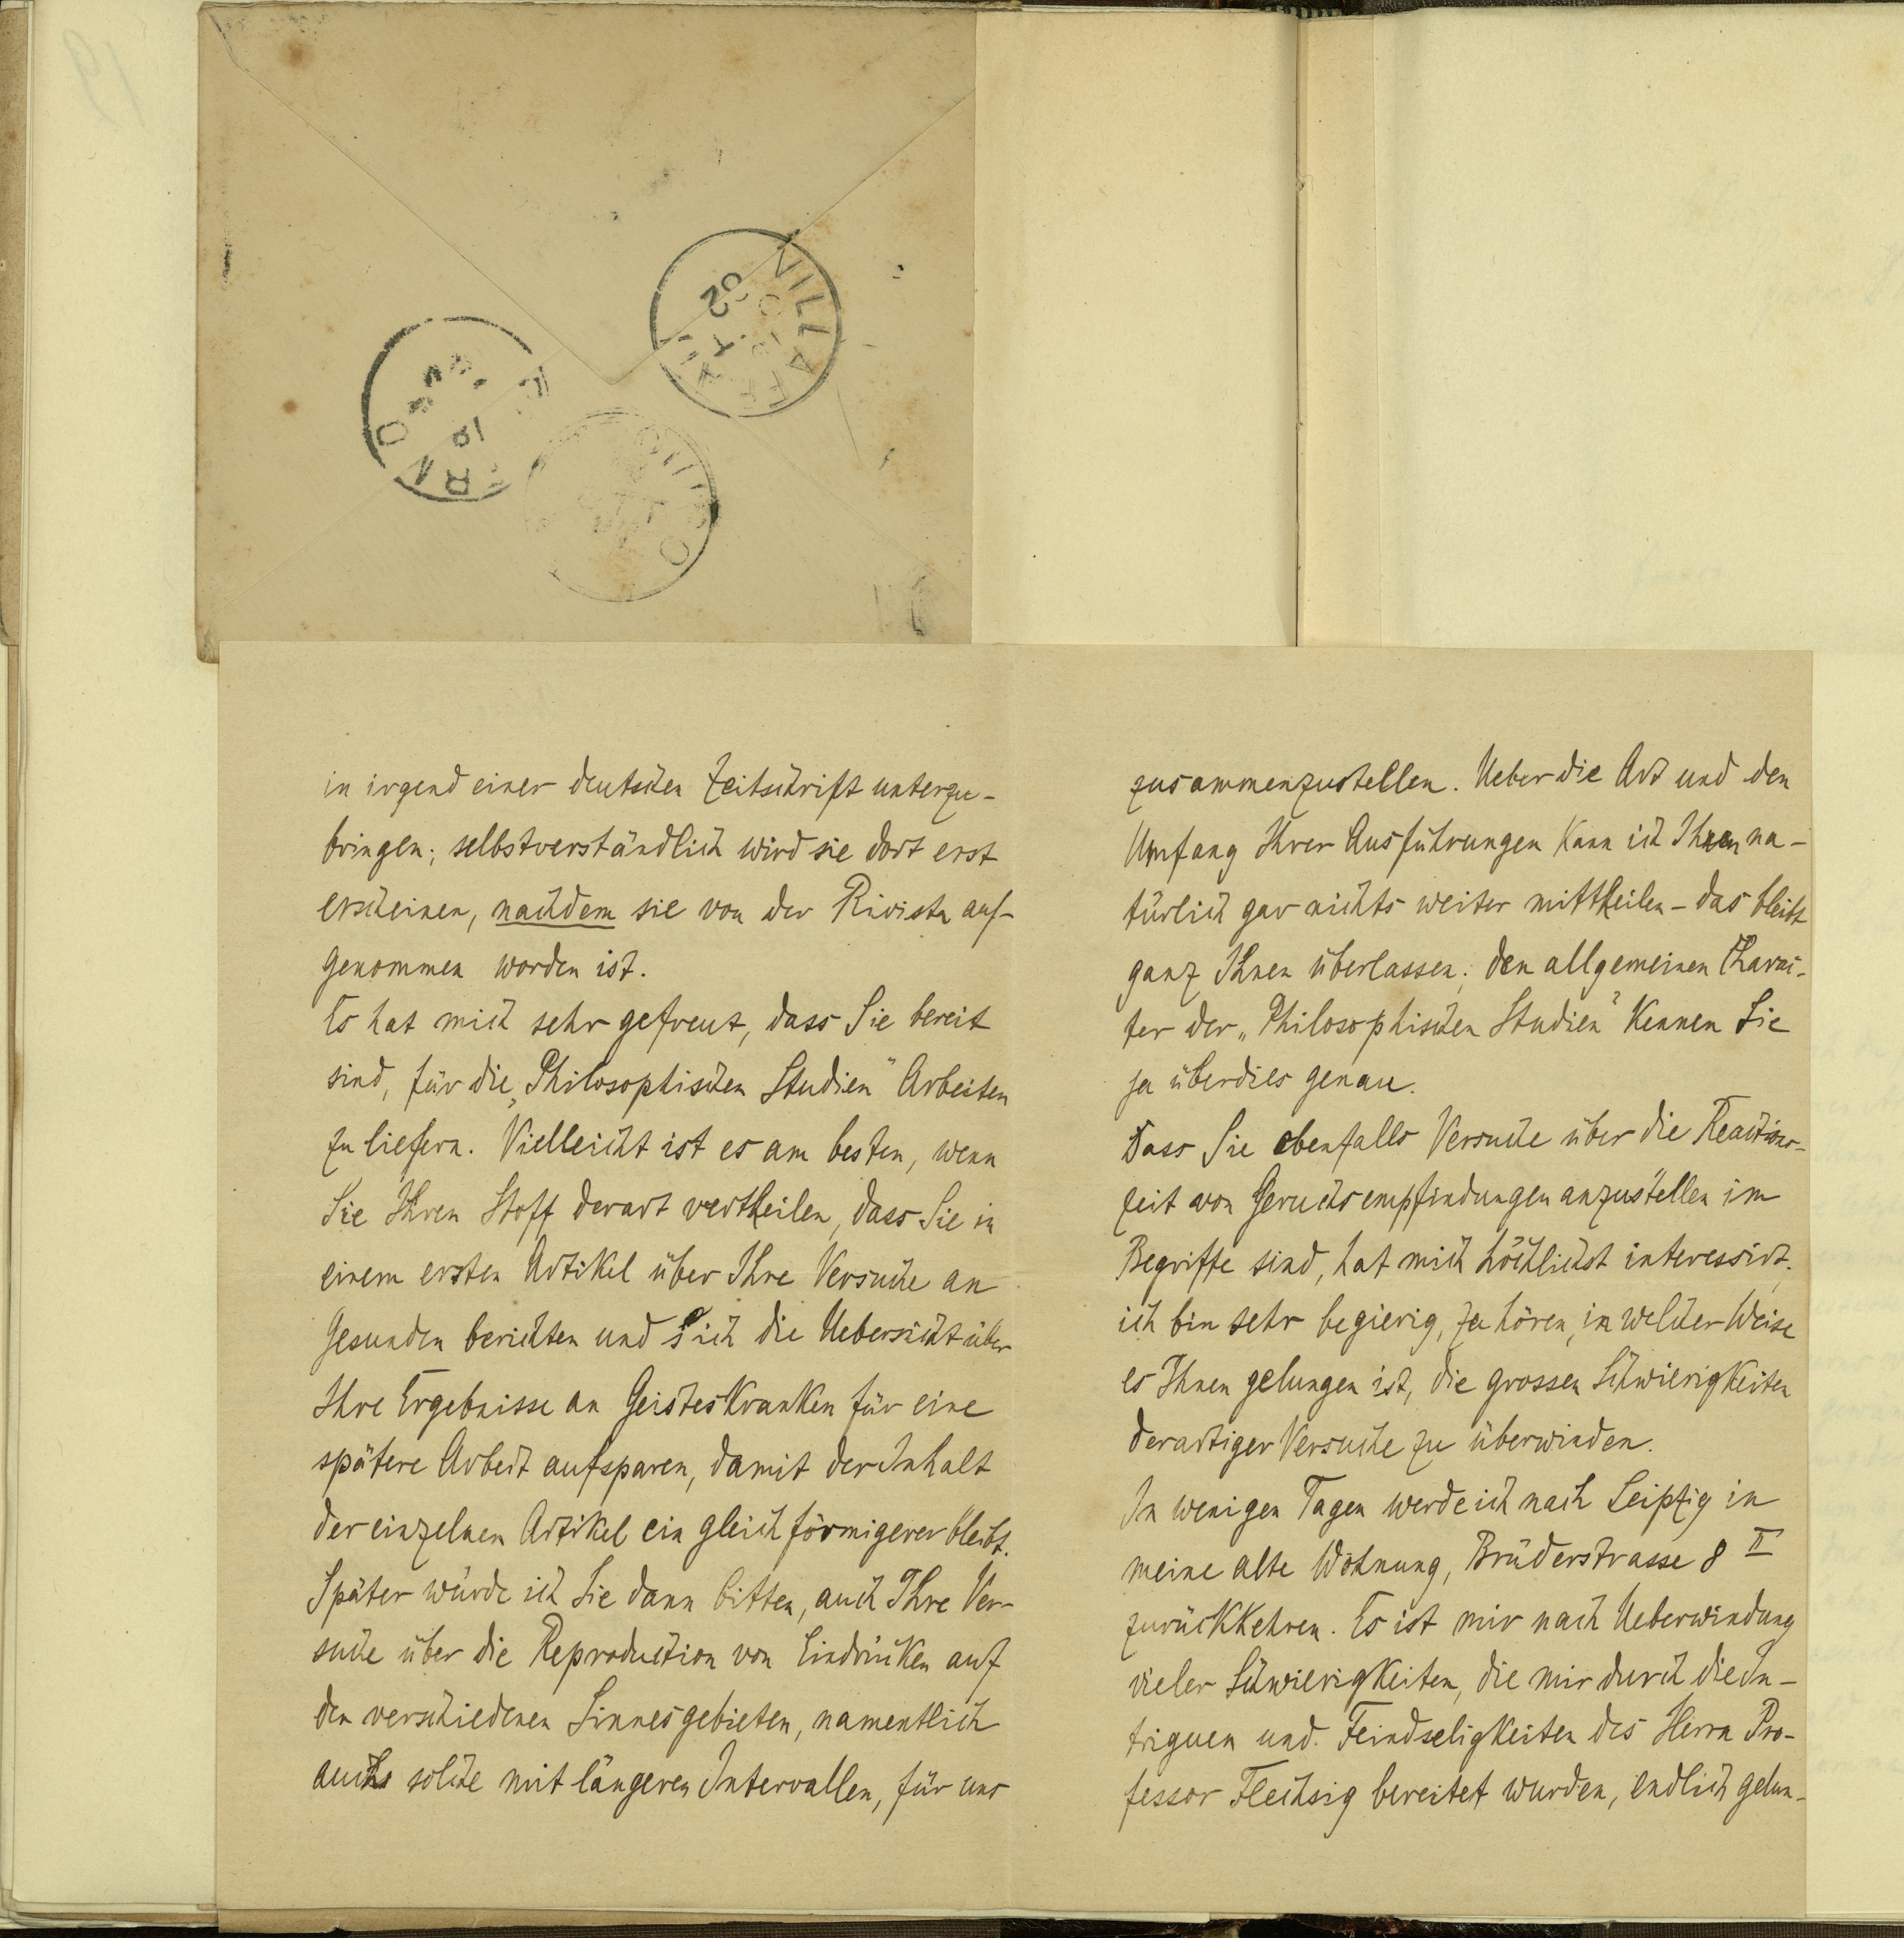 VILLAFRA
82
in irgend einer deutschen Zeitschrift unterzu-
bringen; selbstverständlich wird sie dort erst
erscheinen, nachdem sie von der Rivista auf-
genommen worden ist.
Es hat mich sehr gefreut, dass Sie bereit
sind, für die „Philosophischen Studien" Arbeiten
zu liefern. Vielleicht ist es am besten, wenn
Sie Ihren Stoff derart vertheilen, dass Sie in
einem ersten Artikel über Ihre Versuche an
Gesunden berichten und sich die Uebersicht über
Ihre Ergebnisse an Geisteskranken für eine
spätere Arbeit aufsparen, damit der Inhalt
der einzelnen Artikel ein gleichförmigerer bleibt.
Später würde ich Sie dann bitten, auch Ihre Ver-
suche über die Reproduction von Eindrücken auf
den verschiedenen Sinnesgebieten, namentlich
auch solche mit längeren Intervallen, für uns
zusammenzustellen. Ueber die Art und den
Umfang Ihrer Ausführungen kann ich Ihnen na-
türlich gar nichts weiter mittheilen – das bleibt
ganz Ihnen überlassen; den allgemeinen Charac-
ter der „Philosophischen Studien" kennen Sie
ja überdies genau.
Dass Sie ebenfalls Versuche über die Reactions-
zeit von Geruchsempfindungen anzustellen im
Begriffe sind, hat mich höchlichst interessirt;
ich bin sehr begierig, zu hören, in welcher Weise
es Ihnen gelungen ist, die grossen Schwierigkeiten
derartiger Versuche zu überwinden.
In wenigen Tagen werde ich nach Leipzig in
meine alte Wohnung, Brüderstrasse 8 II
zurückkehren. Es ist mir nach Ueberwindung
vieler Schwierigkeiten, die mir durch die In-
triguen und Feindseligkeiten des Herrn Pro-
fessor Flechsig bereitet wurden, endlich gelun-